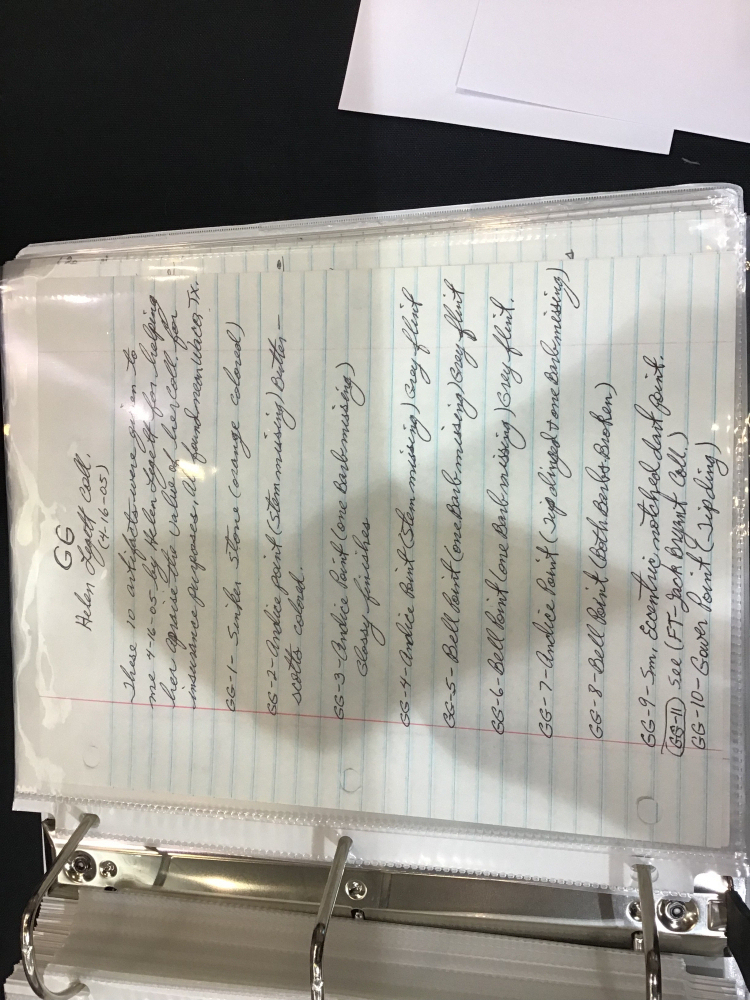 GG
Helen Legett Coll.
(4-16-05)
These 10 artifacts were given to
me 4-16-05 by Helen Legett for helping
her apraise the value of her coll. for
insurance purposes. All found near Waco, Tx.
GG-1- Sinker Stone (orange colored)
GG-2- Andice point (Stem missing) Butter-
scotts colored.
GG-3- Andice Point (one Barb missing)
Glossy finishes
GG-4- Andice Point (Stem missing) Grey flint
GG-5- Bell Point (one Barb missing) Grey flint
GG-6- Bell Point (one Barb missing) Grey flint.
GG-7- Andice Point (Tip dinged & one Barb missing)
GG-8- Bell Point (Both Barbs Broken)
GG-9- Sm. Eccentric notched dart point.
(GG-11) See (FT-Jack Bryant Coll.)
GG-10- Gower Point (Tip ding)